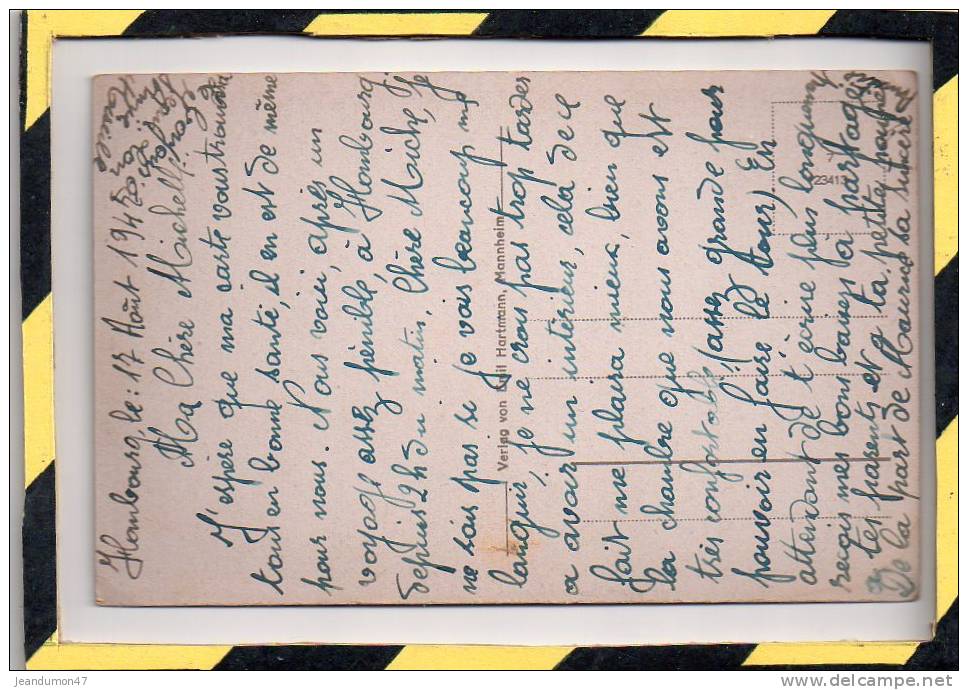 Hombourg le: 17 Août 1945
Ma Chère Maichell
J'espère que ma carte vous trouvera
tous en bonne santé, il en est de même
pour nous. Nous voici, après un
voyage assez pénible, à Hombourg
depuis 2h du matin, Chère Maiche, je
ne sais pas si je vais beaucoup m'y
languir, je ne crois pas trop tardes
a avoir un intérieur, celà de ce
fait me plaira mieux, bien que
la chambre que nous avons est
très confortable (assez grande pour
pouvoir en faire le tour) En
attendant de t'écrire plus longuement
reçois mes bons baisers à partager
tes parents et a ta petite
De la part de Maurice sa sincère
Verlag von Emil Hartmann, Mannheim
23413
jeandumon47
delcampe.net